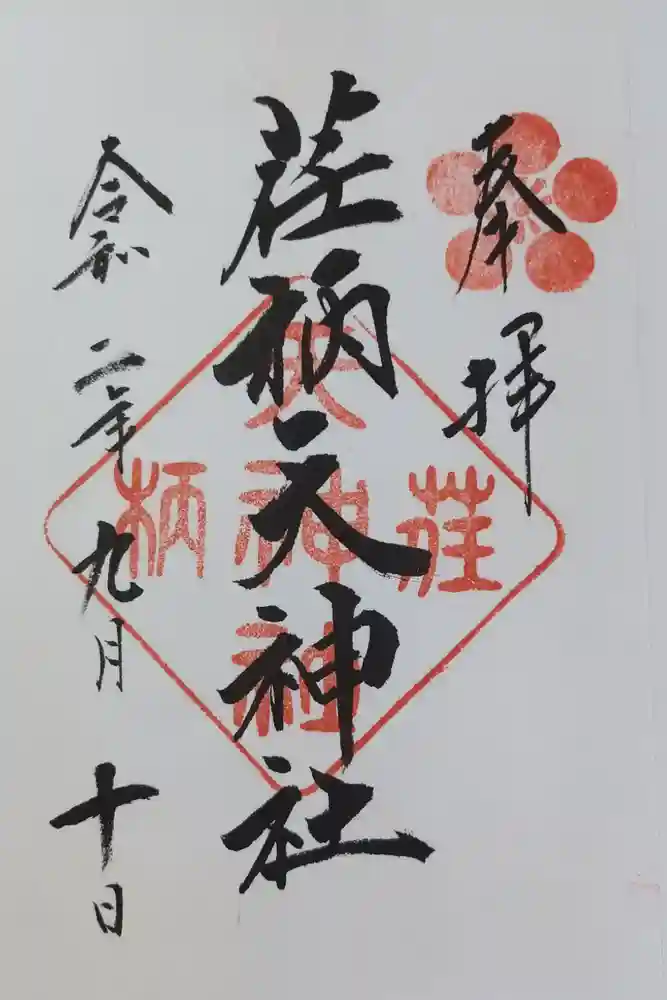 奉拝
荏柄天神社
令和二年九月十日
荏柄天神